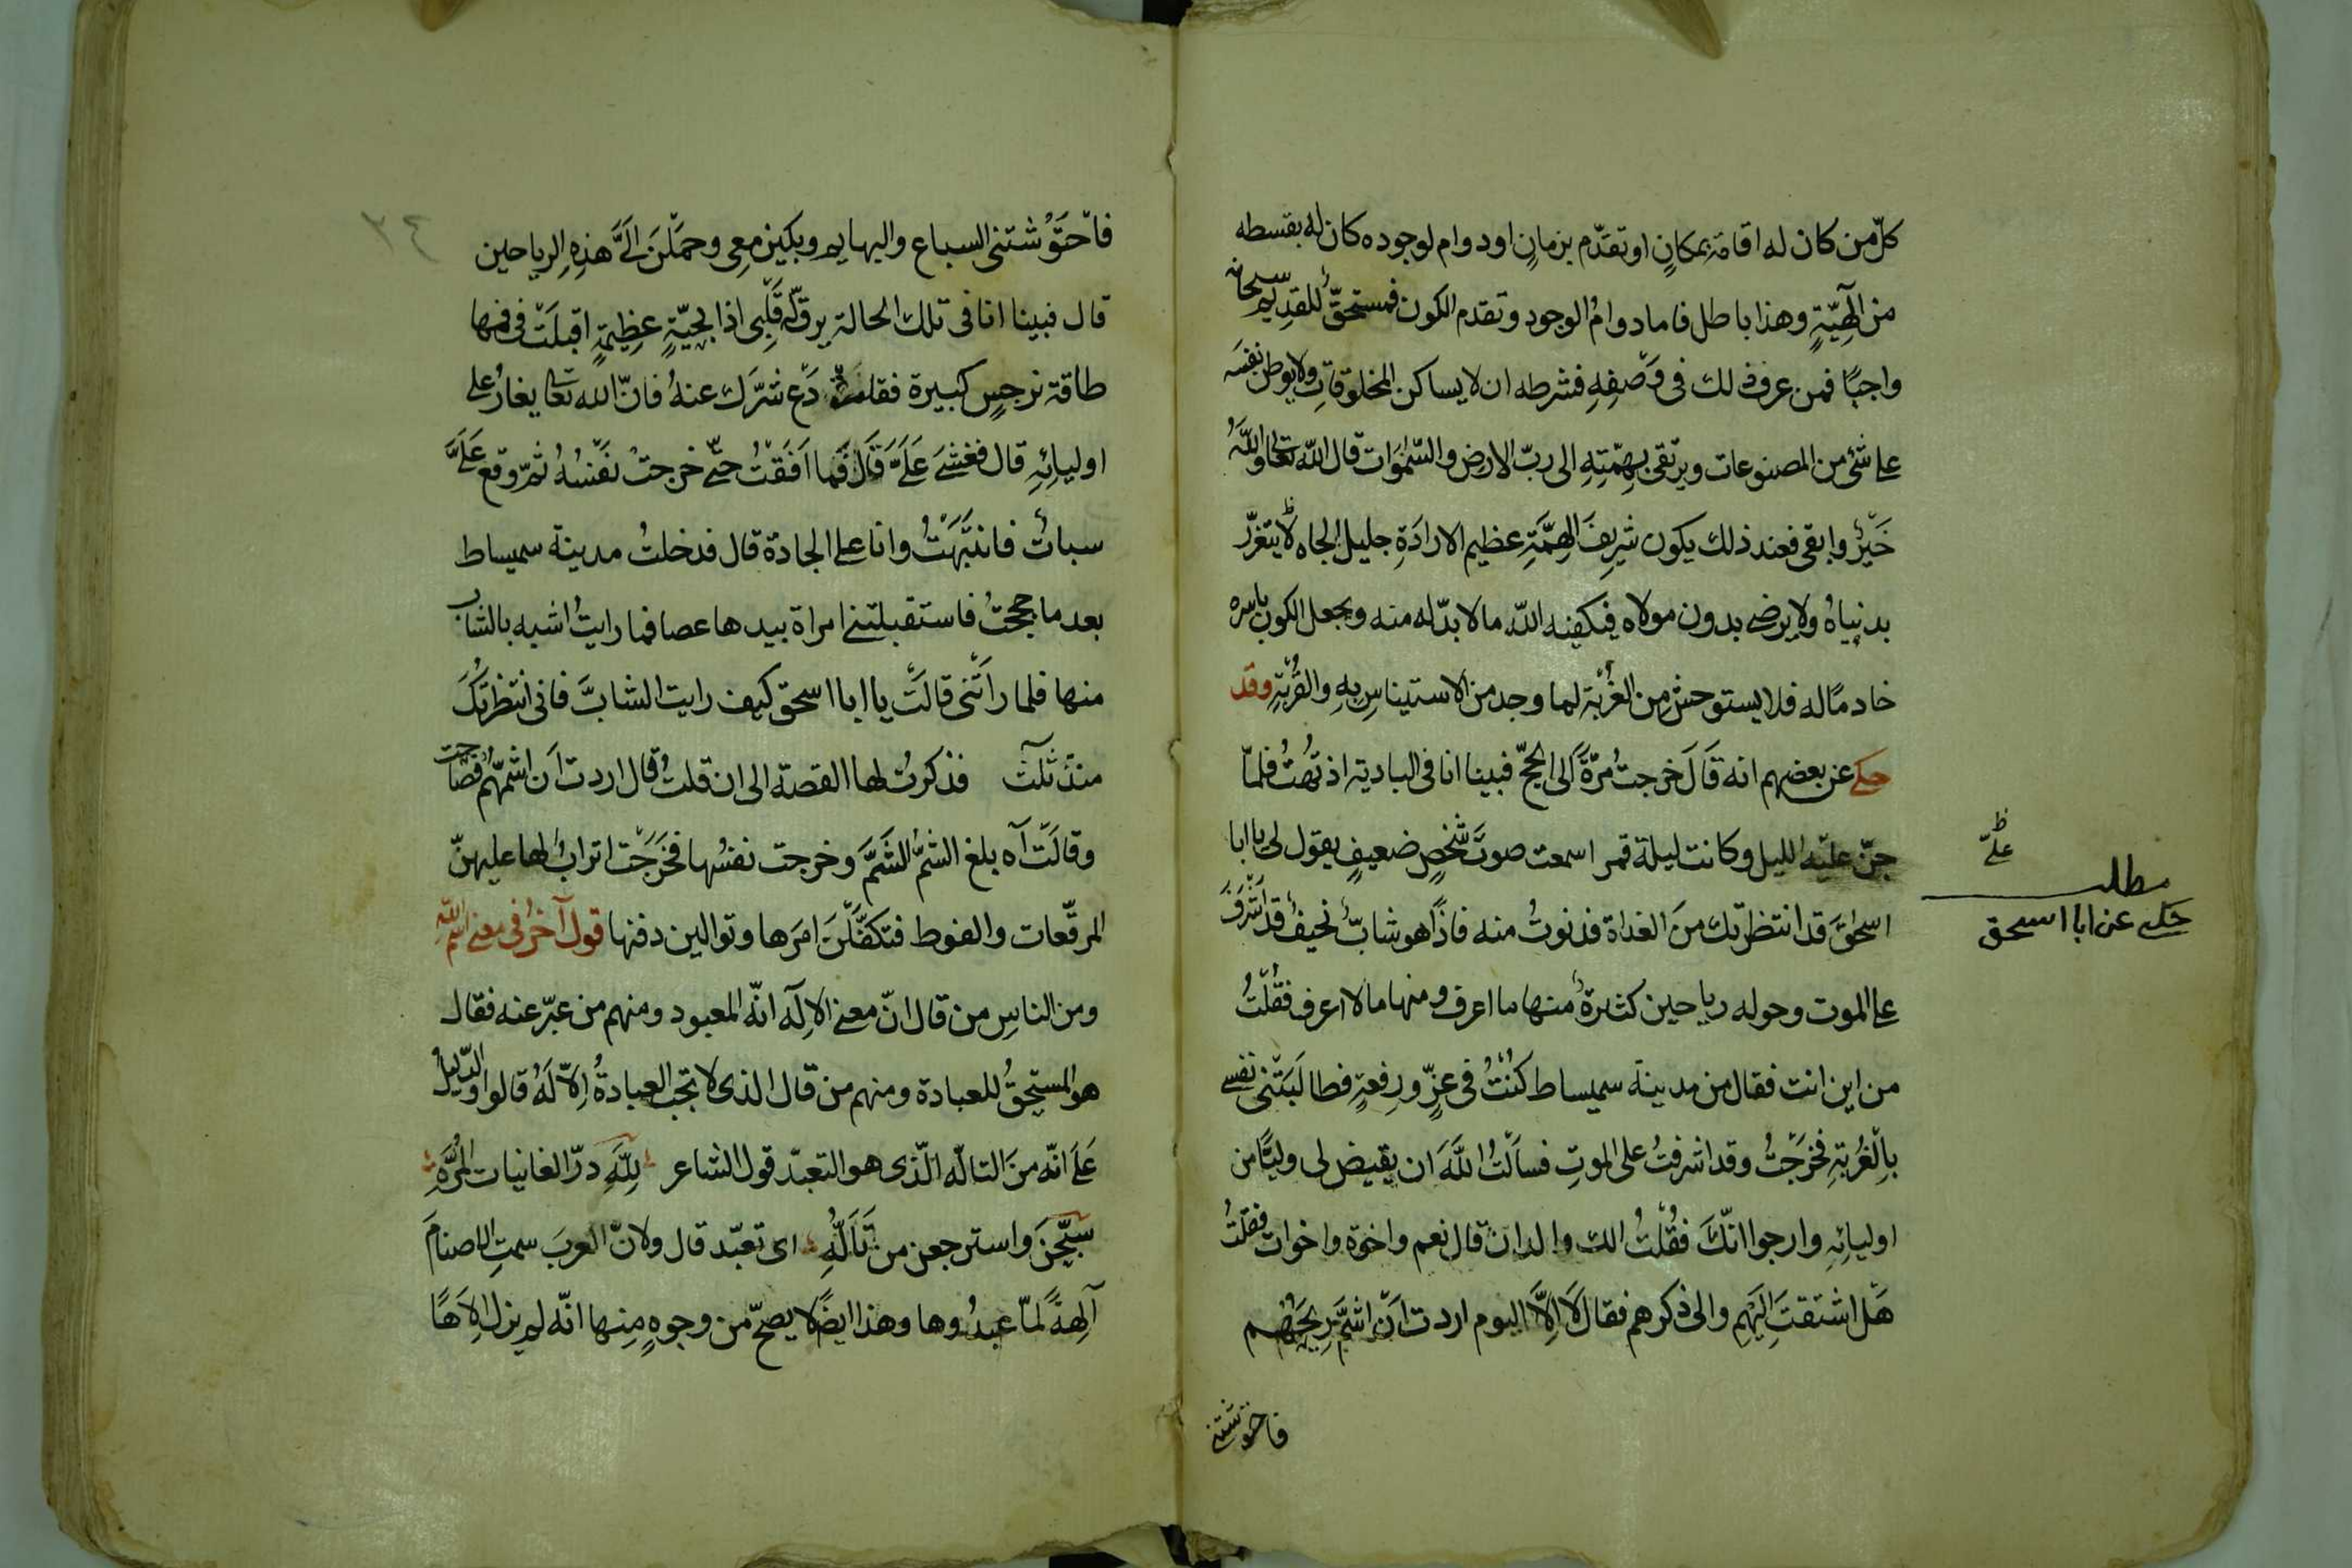 كلّ من كان له اقامة بمكانٍ او تقدّم بزمانٍ او دوام لوجوده كان له بقسطه
من آلهيّةٍ وهذا باطل فاما دوامُ الوجود وتقدم الكون فمستحقٌّ للقديم سبحانه
واجبًا فمن عرف ذلك فى وَصْفِهِ فشرطه ان لا يساكن المخلوقاتِ ولا يوطن نفسَه
على شئ من المصنوعات ويرتقى بهِمّتِهِ الى ربّ الارض والسّمٰوات قال الله تعالى واللّٰهُ
خَيْرٌ وابقى فعند ذلك يكون شريفَ الهِمَّةِ عظيم الارادَةِ جليل الجاه لا يتغرّر
بدنياهُ ولا يرضى بدون مولاه فيكفيه اللّه ما لا بدّ له منه ويجعل الكون باسره
خادمًا له فلا يستوحش مِن الغُرْبَة لما وجد من الاستيناسِ بِهِ والقُرْبَةِ وقد
حكى عن بعضهم انه قَالَ خرجتُ مرّةً الى الحجّ فبينا انا فى البادية اذ تُهتُ فلمّا
جنّ عليّه الليل وكانت ليلة قمر اسمعت صوتَ شخصٍ ضعيفٍ يقول لى يا ابا
اسحٰق قد انتظرتك منَ الغداة فدنوتُ منه فاذًا هو شابٌّ نحيفٌ قد اَشْرَفَ
على الموت وحوله رياحين كثيرةٌ منها ما اعرف ومنها ما لا اعرف فقُلْتُ
من اين انت فقال من مدينة سميساط كُنْتُ فى عِزٍّ ورِفعةٍ فطالَبَتْنى نفسى
بالْغُرْبَةِ فخرَجْتُ وقد اشرفتُ على الموتِ فسألْتُ اللّٰهَ ان يقيض لى وليًّا من
اوليائِهِ وارجوا انّكَ فقُلْتُ الك والدان قال نعم واخوة واخوات فقلتُ
هَلْ اشتقتَ اِلَيْهِم والى ذكرهم فقال لَا اِلَّا اليوم اردت اَنْ اشَمَّ رِيحَهُم
فاحتوشتنى
ظ
علىّ
مطلب
حكى عن ابا اسحق
٣٤
فاحْتَوَشتنى السباع والبهايم وبكين معى وحمَلْنَ اِلَىَّ هذِهِ الرياحين
قال فبينا انا فى تلك الحالة يرقّ له قَلْبِى اذا بِحَيّةٍ عظيمةٍ اقبلَتْ فى فمها
طاقة نرجسٍ كبيرة فقلت دَعْ شرّك عنهُ فانّ الله تعالى يغارُ على
اوليائِهِ قال فغشىَ عَلَىَّ قَالَ فَما اَفَقْتُ حتّى خرجتْ نَفْسُهُ ثمّ وقع عَلَىَّ
سباتٌ فانتَبَهْتُ وانا على الجادة قال فدخلتُ مدينة سميساط
بعد ما حججتُ فاستقبلتنى امراة بيدها عصا فما رايتُ اشبه بالشاب
منها فلما رأتْنى قالَتْ يا ابا اسحق كيف رايت الشابَّ فانى انتظرتكَ
منذ ثلث فذكرتُ لها القصة الى ان قلتُ قال اردت اَن اشمّهُم فصاحت
وقالَت آه بلغ الشمُّ الشَمَّ وخرجت نفسُها فخَرَجَت اترابٌ لها عليهنّ
المرقّعات والفوط فتكفّلْنَ امرَها وتوالين دفنها قول آخرُ فى معنى اسم اللّٰهِ
ومن الناسِ من قال انّ معنى الاِلٓه انّه المعبود ومنهم من عبّر عنه فقال
هو المستحِقُّ للعبادة ومنهم من قال الذى لا تجب العبادةُ اِلّا لَهُ قالوا والدّليلُ
عَلَى انّه منَ التالّه الّذى هو التعبّد قول الشاعر لِلّهِ درّ الغانيات المُدَّهِ
سَبّحْنَ واسترجعن من تَأَلُّهِ اى تعبّد قال ولانّ العربَ سمتِ الاصنامَ
آلِهةً لمّا عبدُوها وهذا ايضًا لا يصحّ من وجوهٍ مِنها انّه لم يزل اِلَاهًا